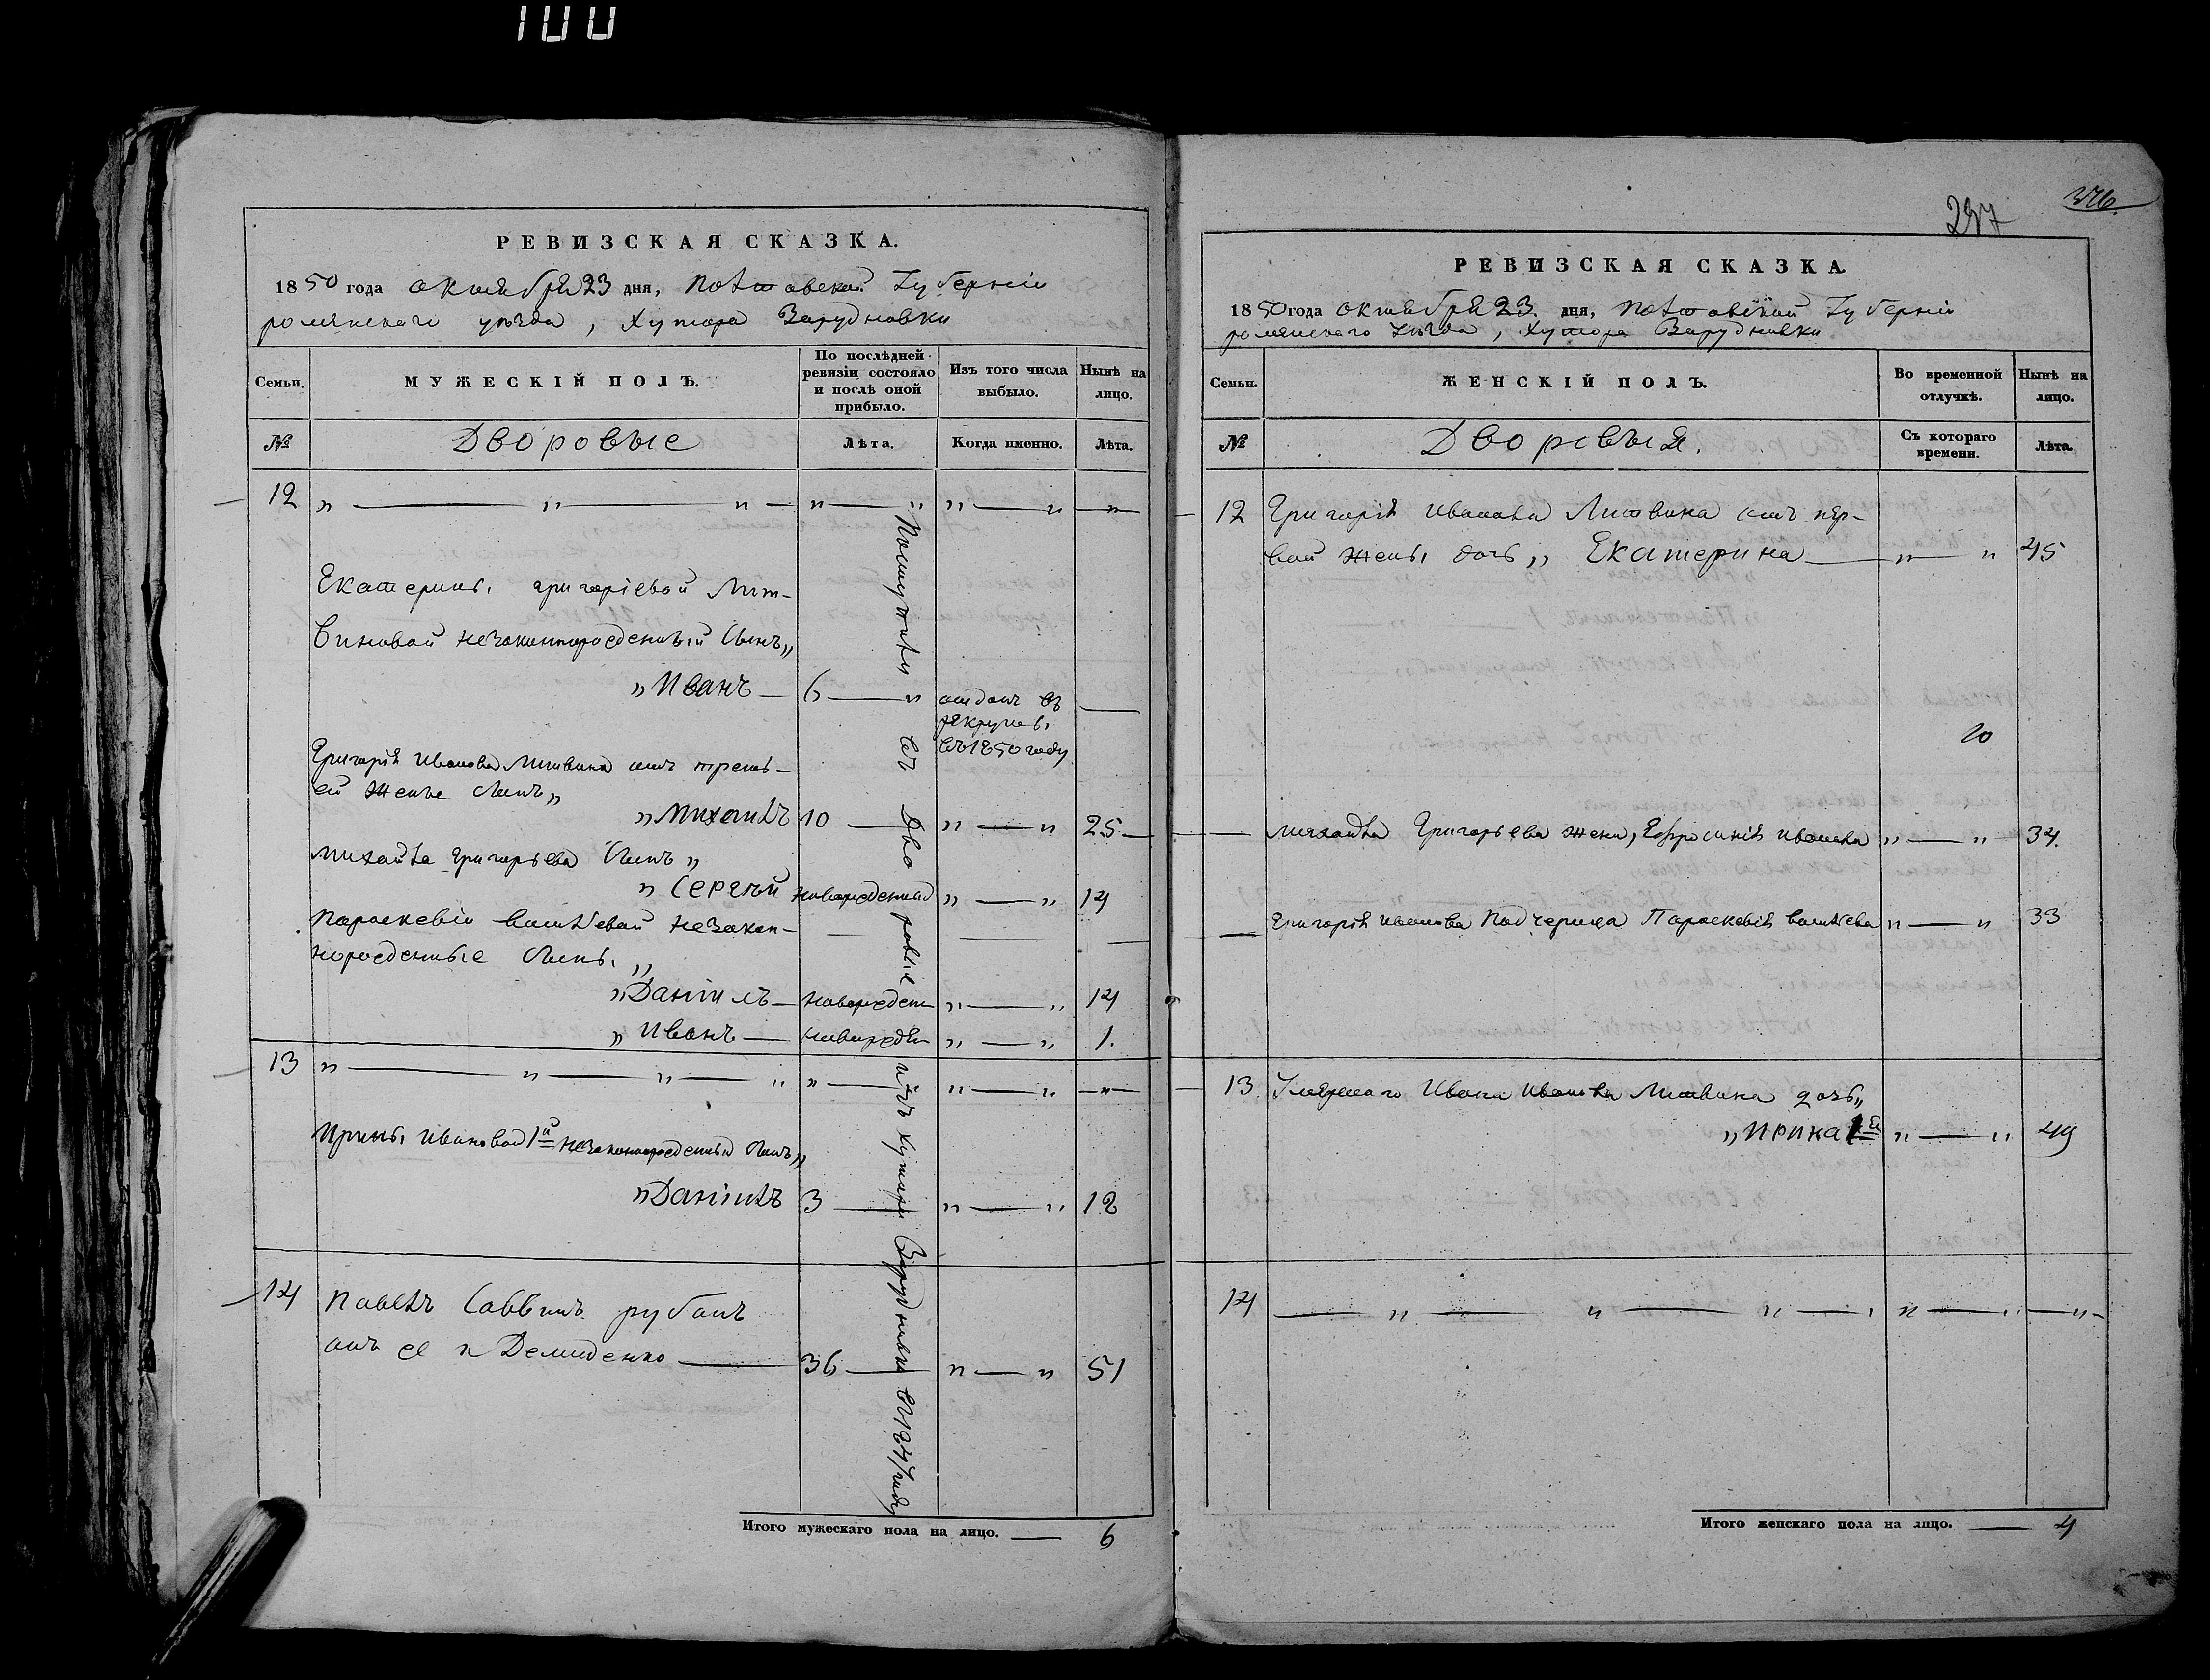 100
РЕВИЗСКАЯ СКАЗКА.
1850 года октября 23 дня, Полтавской Губерніи
роменскаго уѣзда, Хутора Зарудновки
Семьи.
МУЖЕСКІЙ ПОЛЪ.
По послѣдней ревизіи состояло и послѣ оной прибыло.
Изъ того числа выбыло.
Нынѣ на лицо.
№
Дворовые
Лѣта.
Когда именно.
Лѣта.
12 „ — „ — „ — „ — „ „ — „ — „ —
Екатерины Григоріевой Лит-
виновой незаконнорожденный Сынъ „
„ Иванъ — 6 — „ отданъ въ
рекруты
въ 1850 году —
Григорія Иванова Литвина отъ треть-
ей Жены Сынъ „
„ Михаилъ 10 — „ — „ 25 —
Михайла Григорьева Сынъ „
„ Сергѣй новорожденный „ — „ 14
Параскевіи Васильевой незакон-
норожденные Сыны „
„ Даніилъ — новорожден „ — „ 14
„ Иванъ — новорожден „ — „ 1.
13 „ — „ — „ — „ „ — „ — „ — „ —
Ирины Ивановой 1й незаконнорожденный Сынъ „
„ Даніилъ 3 — „ — „ 12
14 Павелъ Саввинъ рубанъ
онъ же и Демиденко — 36 — „ — „ 51
Поступили въ Дворовые изъ хутора Зарудновки въ 1847 году
Итого мужескаго пола на лицо. — 6
297
376.
РЕВИЗСКАЯ СКАЗКА.
1850 года октября 23. дня, Полтавской Губерніи
роменскаго уѣзда, Хутора Зарудновки
Семьи.
ЖЕНСКІЙ ПОЛЪ.
Во временной отлучкѣ.
Нынѣ на лицо.
№
Дворовыя.
Съ котораго времени.
Лѣта.
12 Григорія Иванова Литвина отъ пер-
вой жены дочь „ Екатерина — „ — „ 45
20
Михайла Григорьева жена, Ефросинія Иванова „ — „ 34.
Григорія Иванова Подчерица Параскевія Васильева „ — „ 33
13 Умершаго Ивана Иванова Литвина дочь „
„ Ирина 1я „ — „ 49
14 — „ — „ — „ — „ — „ — „ —
Итого женскаго пола на лицо. — 4